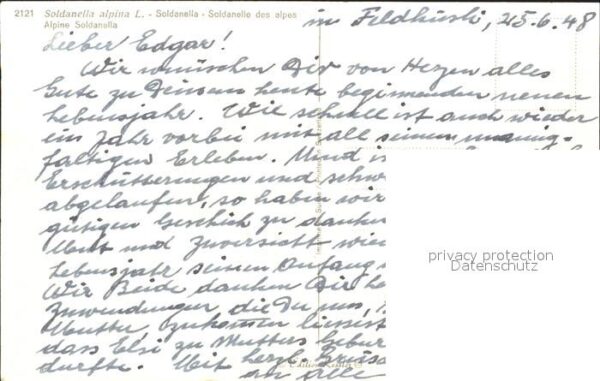 2121 Soldanella alpina L. - Soldanella - Soldanelle des alpes
Alpine Soldanella
in Feldhüsli, 25.6.48
Lieber Edgar!
Wir wünschen Dir von Herzen alles
Gute zu Deinem heute beginnenden neuen
Lebensjahr. Wie schnell ist auch wieder
ein Jahr vorbei mit all seinem mannig-
faltigen Erleben. Sind
Erschütterungen und
abgelaufen, so haben wir
gütigen Geschick zu danken
Mut und Zuversicht
Lebensjahr seinen Anfang
Wir Beide danken Dir
Zuwendungen die Du uns,
Mutter, zukommen liessest
dass Elsi zu Mutters
durfte. Mit herzl.
an alle
privacy protection
Datenschutz